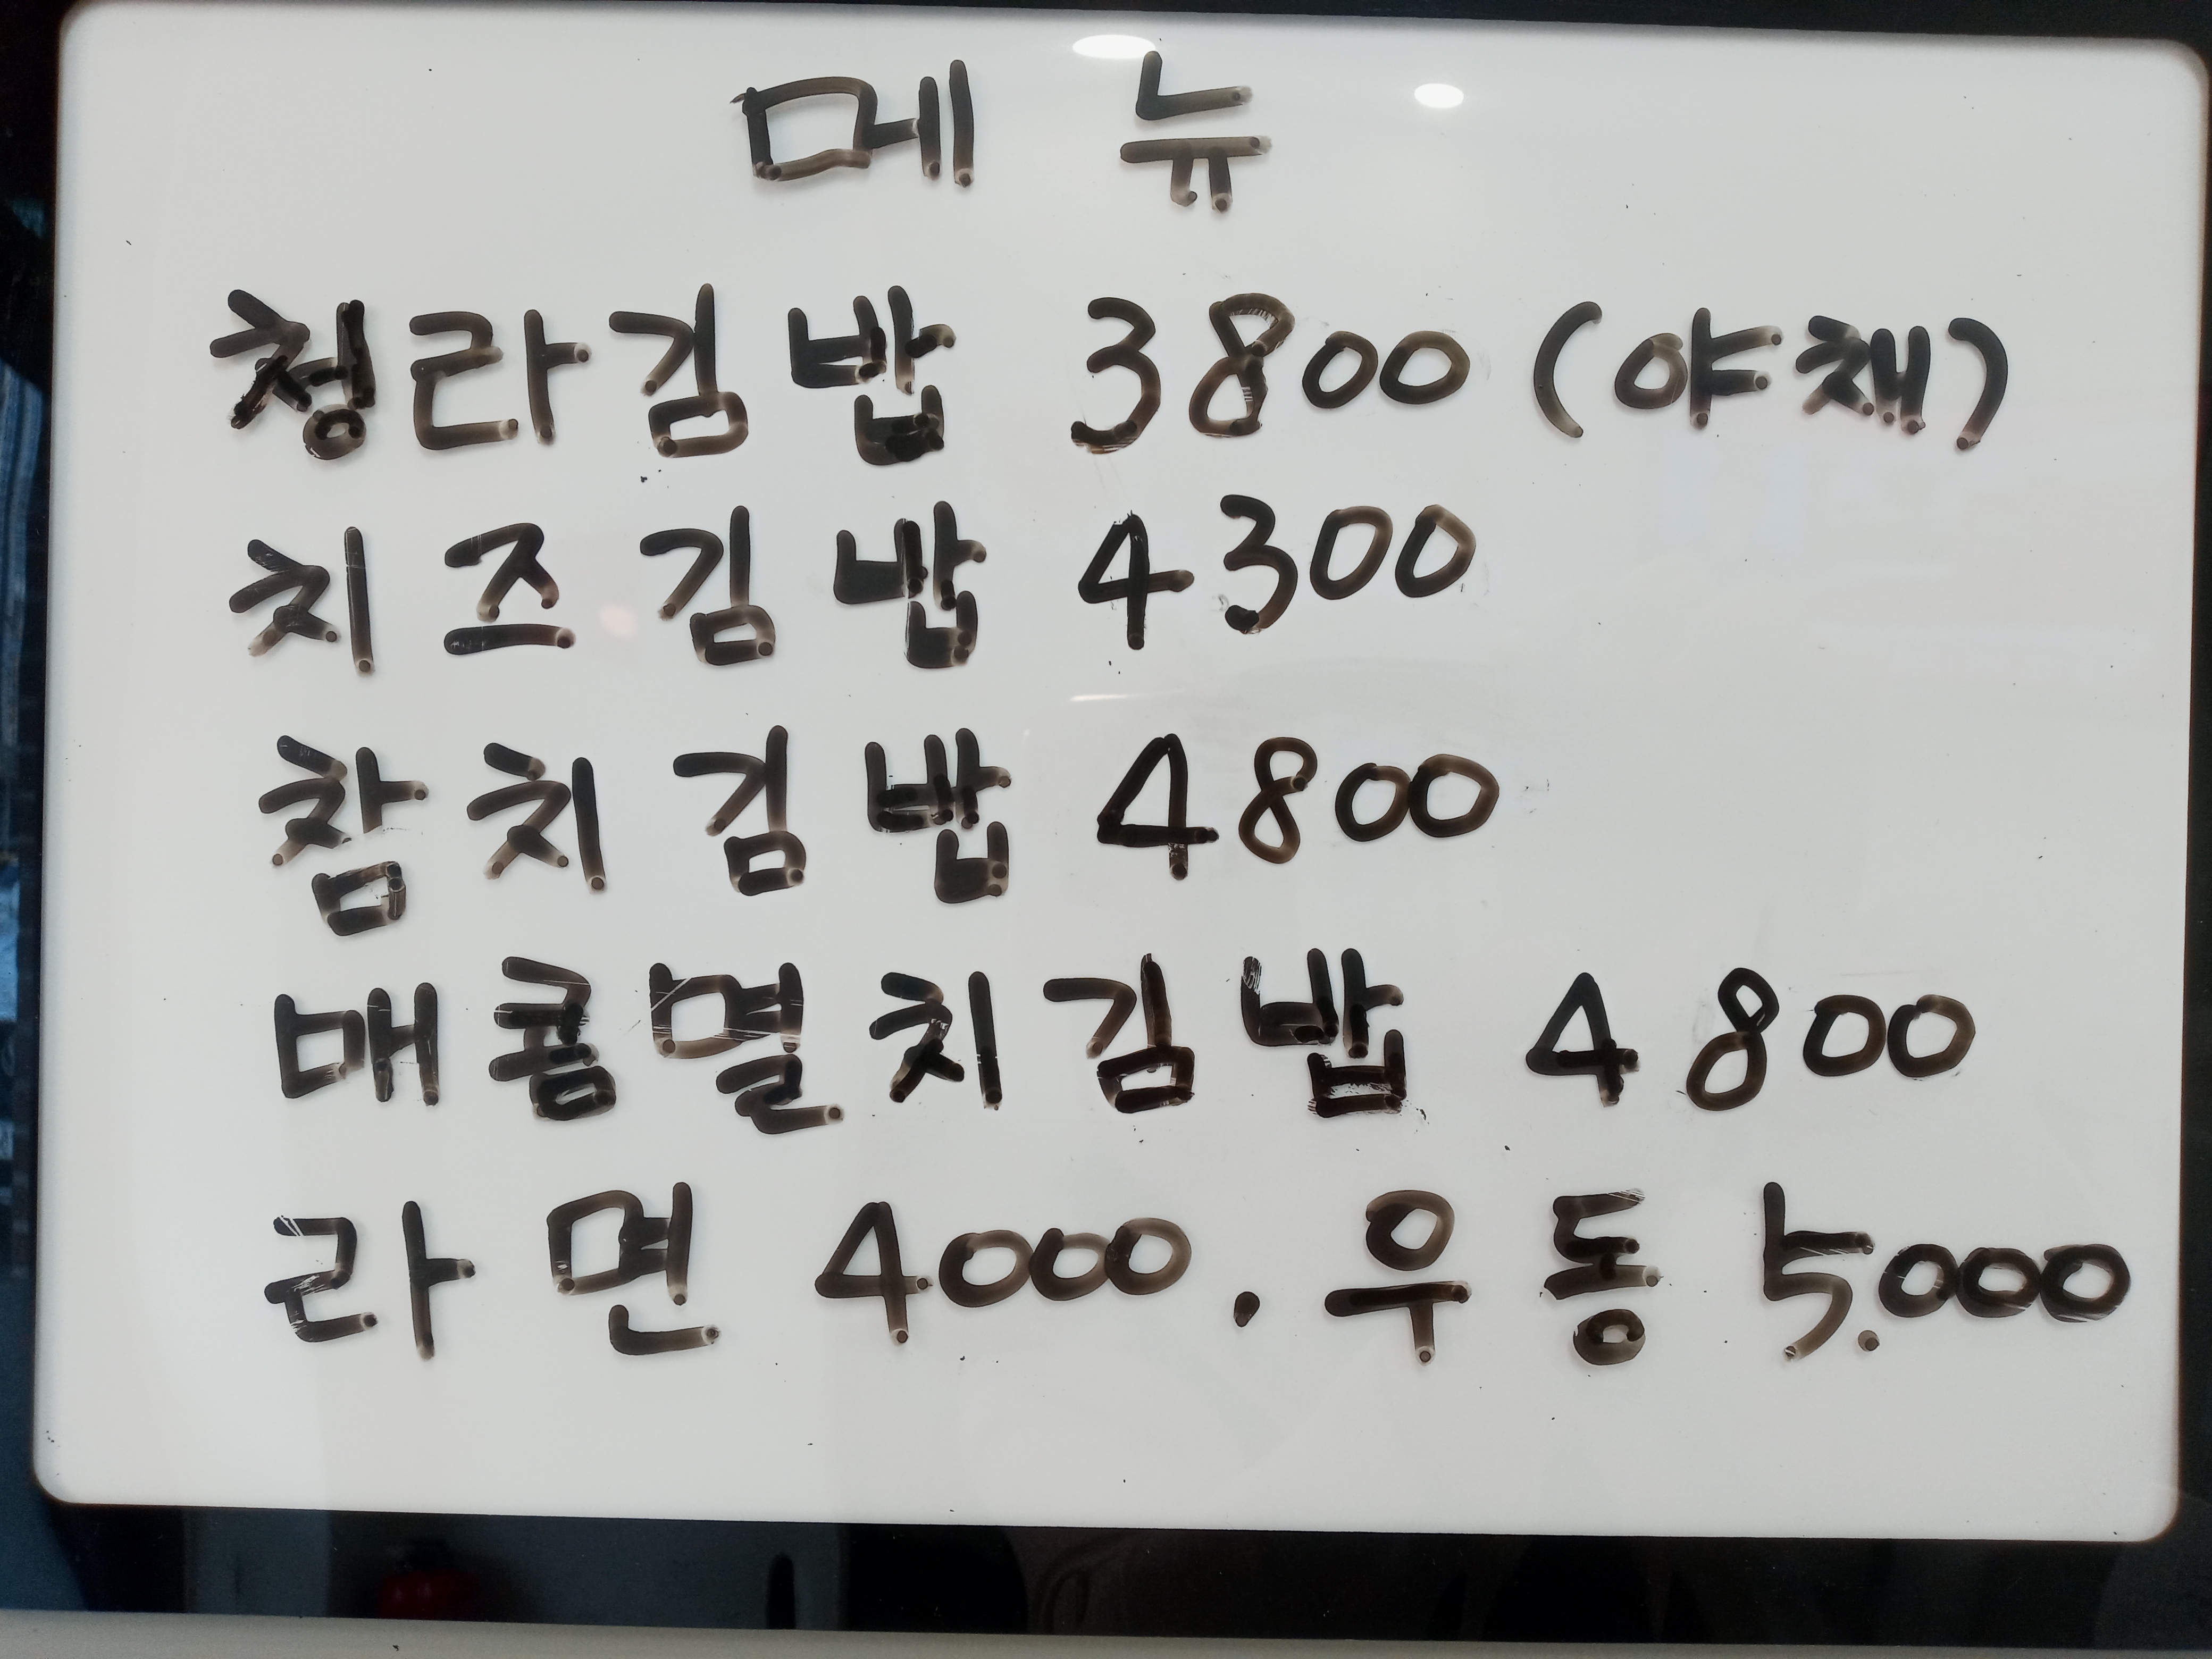 메 뉴
청라김밥 3800 (야채)
치즈김밥 4300
참치김밥 4800
매콤멸치김밥 4800
라면 4000. 우동 5.000